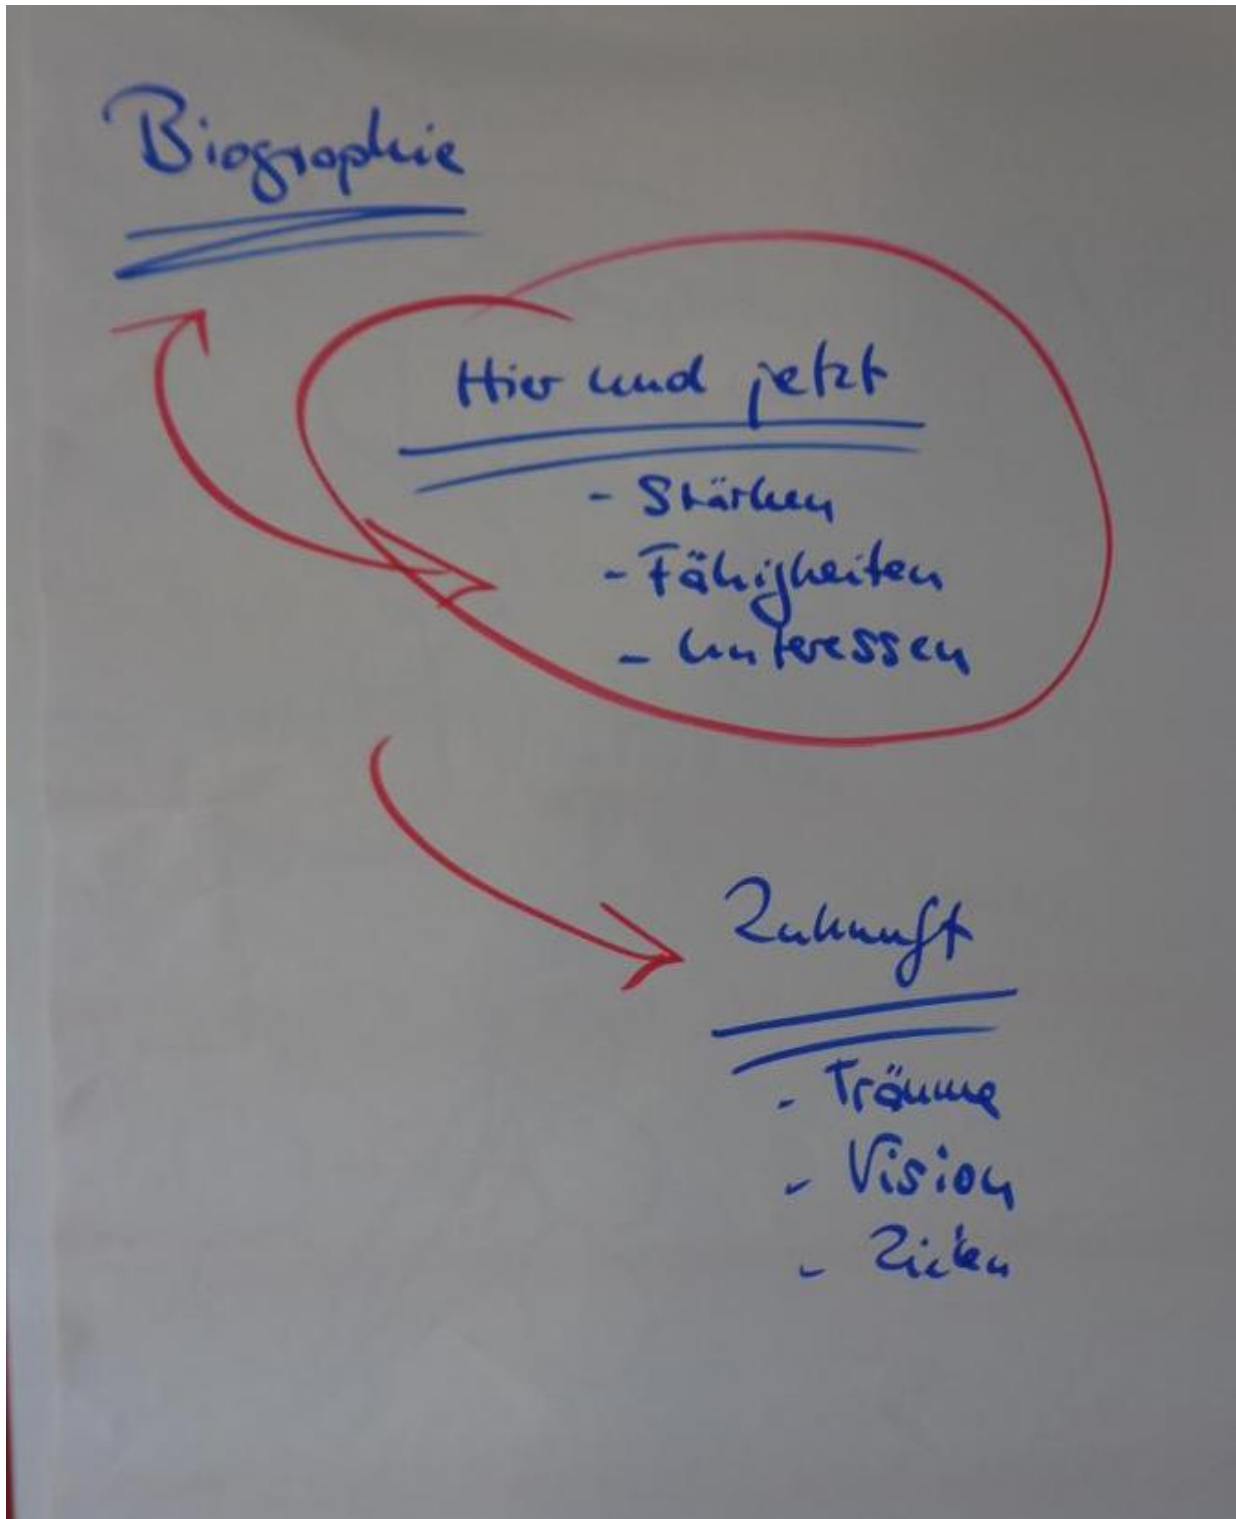 Biographie
Hier und jetzt
- Stärken
- Fähigkeiten
- Interessen
Zukunft
- Träume
- Vision
- Zielen